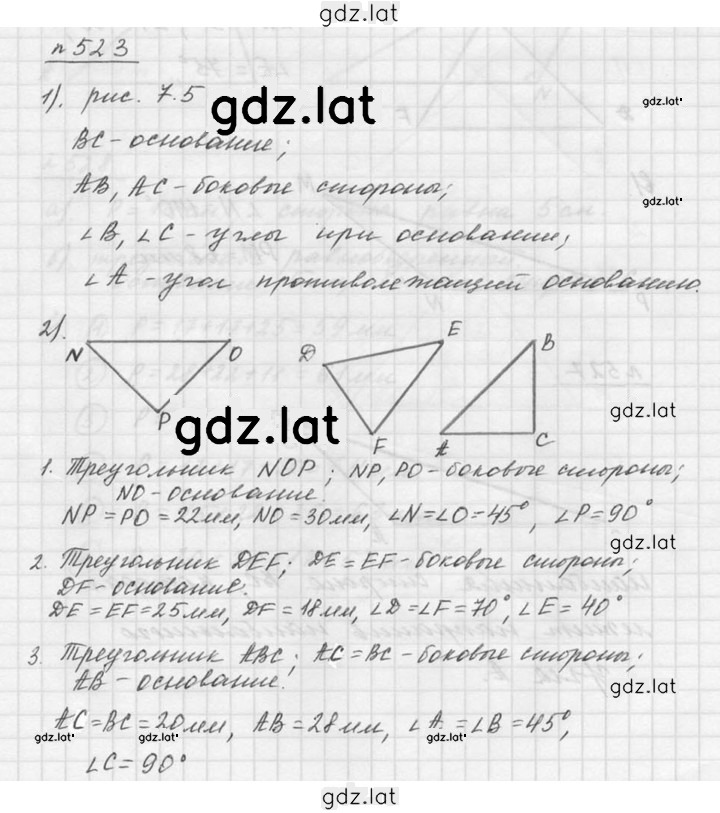 gdz.lat
n 523
1). рис. 7.5
gdz.lat
gdz.lat
BC - основание;
AB, AC - боковые стороны;
gdz.lat
∠B, ∠C - углы при основании;
∠A - угол противолежащий основанию.
2).
N O P
D E F
B A C
gdz.lat
gdz.lat
1. Треугольник NOP; NP, PO - боковые стороны;
NO - основание.
NP = PO = 22мм, NO = 30мм, ∠N = ∠O = 45°, ∠P = 90°
gdz.lat
2. Треугольник DEF; DE = EF - боковые стороны;
DF - основание.
DE = EF = 25мм, DF = 18мм, ∠D = ∠F = 70°, ∠E = 40°
3. Треугольник ABC; AC = BC - боковые стороны;
AB - основание.
gdz.lat
AC = BC = 20мм, AB = 28мм, ∠A = ∠B = 45°,
gdz.lat gdz.lat gdz.lat
∠C = 90°
gdz.lat